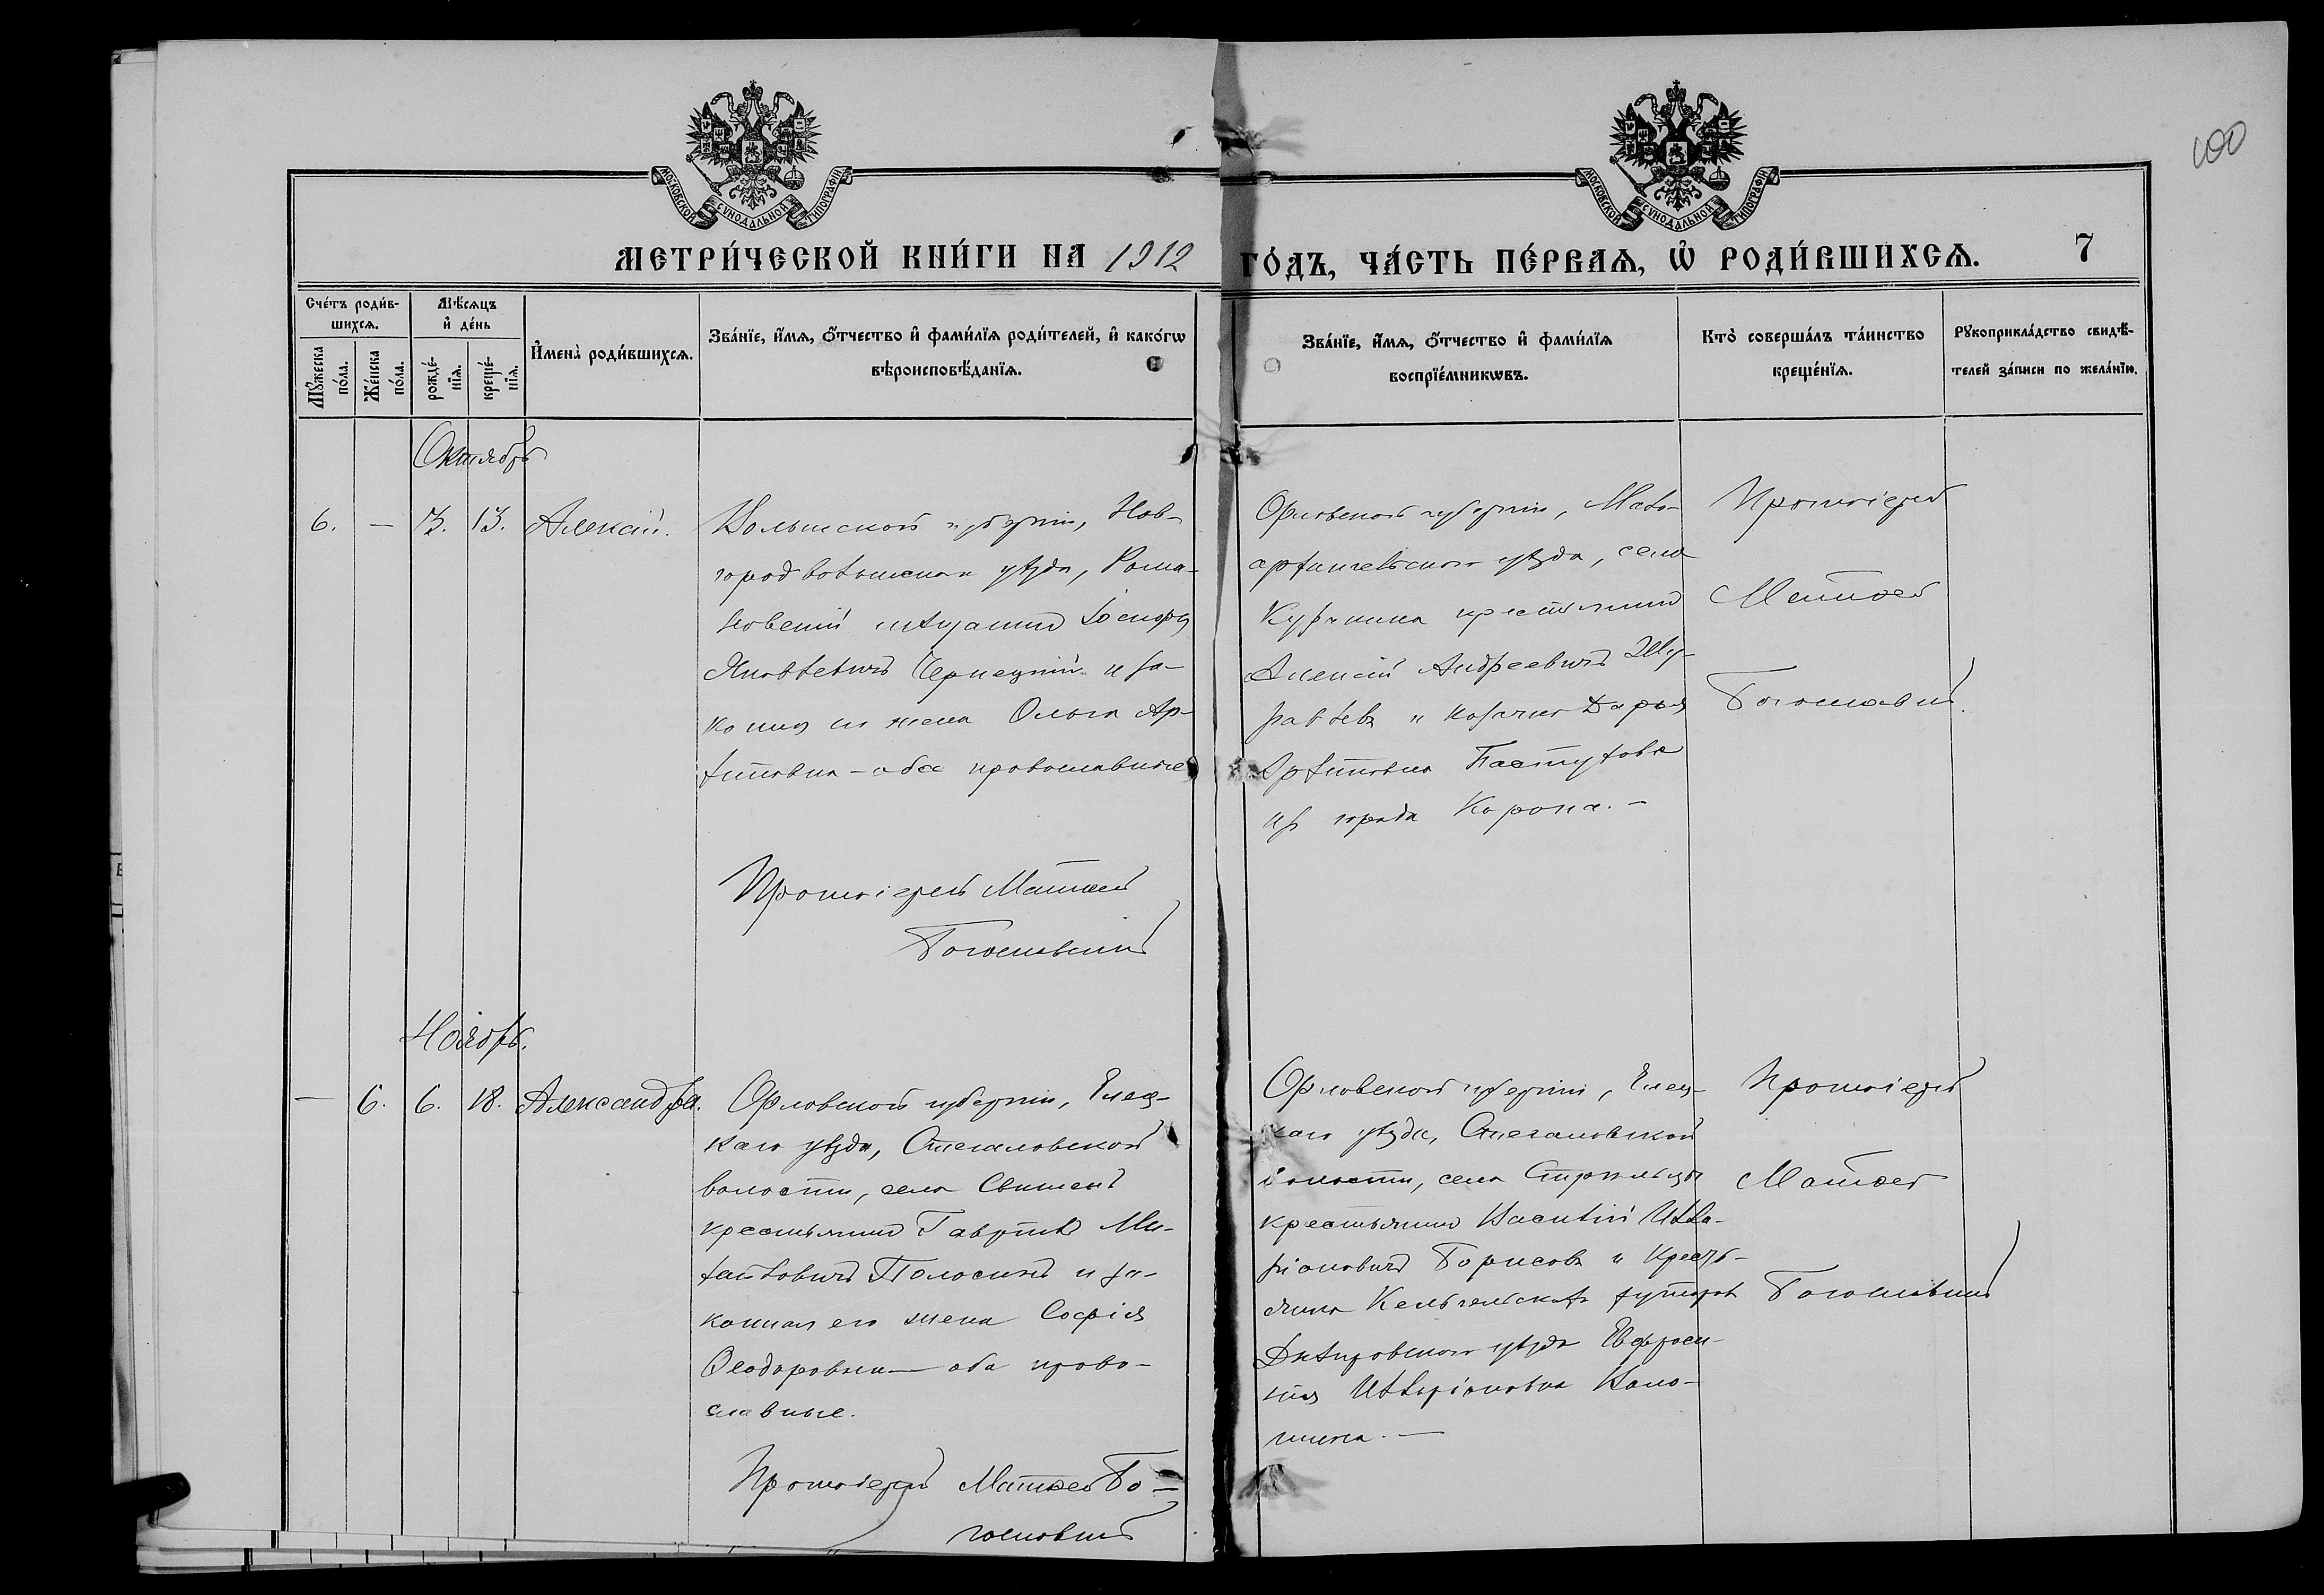 100
МОСКОВСКОЙ СѴНОДАЛЬНОЙ ТИПОГРАФІИ
МОСКОВСКОЙ СѴНОДАЛЬНОЙ ТИПОГРАФІИ
МЕТРИ́ЧЕСКОЙ КНИ́ГИ НА 1912 ГО́ДЪ, ЧА́СТЬ ПЕ́РВАѦ, Ѽ РОДИ́ВШИХСѦ. 7
Сче́тъ роди́в-
шихсѧ.
Мꙋ́жеска по́ла.
Же́нска по́ла.
Мѣ́сѧцъ
и҆ де́нь
рожде́-
нїѧ.
креще́-
нїѧ.
И҆мена̀ роди́вшихсѧ.
Зва́нїе, и҆́мѧ, ѻ҆́тчество и҆ фами́лїѧ роди́телей, и҆ како́гѡ
вѣроисповѣ́данїѧ.
Зва́нїе, и҆́мѧ, ѻ҆́тчество и҆ фами́лїѧ
воспрїе́мникѡвъ.
Кто̀ соверша́лъ та́инство
креще́нїѧ.
Рꙋкоприкла́дство свидѣ́-
телей за́писи по жела́нїю.
Октябрь
6. — 3. 13. Алексій.
Волынской губерніи, Нов-
городволынскаго уѣзда, Рома-
новскій мѣщанинъ Іосифъ
Яковлевичъ Чернецкій и за-
конная его жена Ольга Ар-
хиповна — оба православные
Протоіерей Матѳей
Богословскій
Орловской губерніи, Мало-
архангельскаго уѣзда, села
крестьянинъ
Алексій Андреевичъ Жу-
равлевъ и казачка Дарья
Архиповна Пастухова
изъ города
Протоіерей
Матѳей
Богословскій.
Ноябрь.
— 6. 6. 18. Александра.
Орловской губерніи, Елец-
каго уѣзда, Стегаловской
волости, села Свишенъ
крестьянинъ Гавріилъ Ми-
хаиловичъ Полосинъ и за-
конная его жена Софія
Ѳеодоровна — оба право-
славные.
Протоіерей Матѳей Бо-
гословскій
Орловской губерніи, Елец-
каго уѣзда, Стегаловской
волости, села
крестьянинъ Василій Илла-
ріоновичъ Борисовъ и кресть-
янка хутора
Днѣпровскаго уѣзда Евфроси-
нія Илларіоновна
Протоіерей
Матѳей
Богословскій